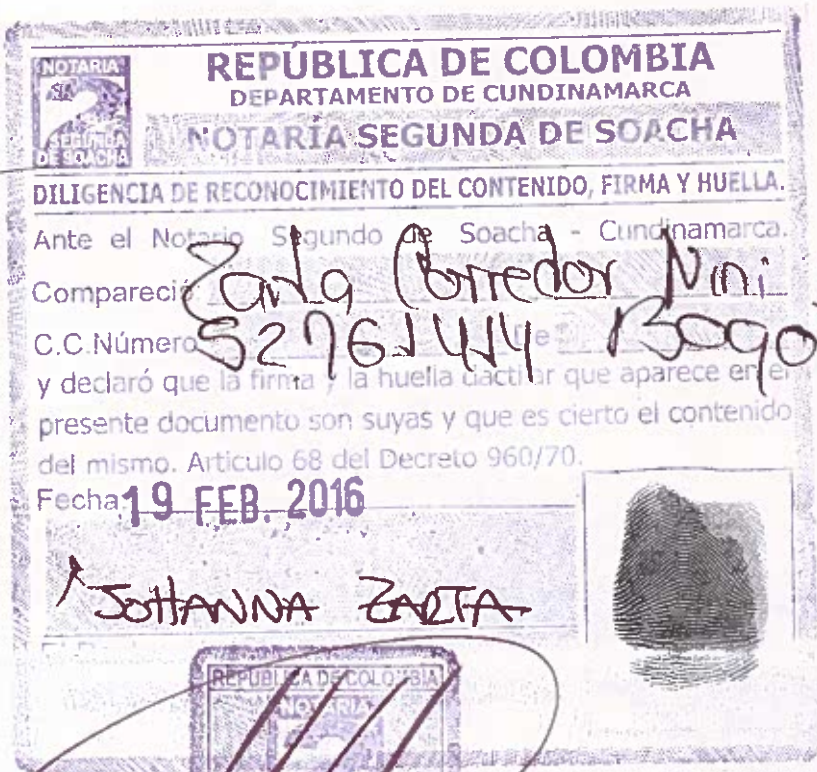 NOTARIA
2
SEGUNDA
DE SOACHA
REPÚBLICA DE COLOMBIA
DEPARTAMENTO DE CUNDINAMARCA
NOTARÍA SEGUNDA DE SOACHA
DILIGENCIA DE RECONOCIMIENTO DEL CONTENIDO, FIRMA Y HUELLA.
Ante el Notario Segundo de Soacha - Cundinamarca.
Compareció Zarta Corredor Nini
C.C.Número 52761414 de Bogo
y declaró que la firma y la huella dactilar que aparece en el
presente documento son suyas y que es cierto el contenido
del mismo. Articulo 68 del Decreto 960/70.
Fecha 19 FEB. 2016
JOHANNA ZARTA
REPUBLICA DE COLOMBIA
NOTARIA